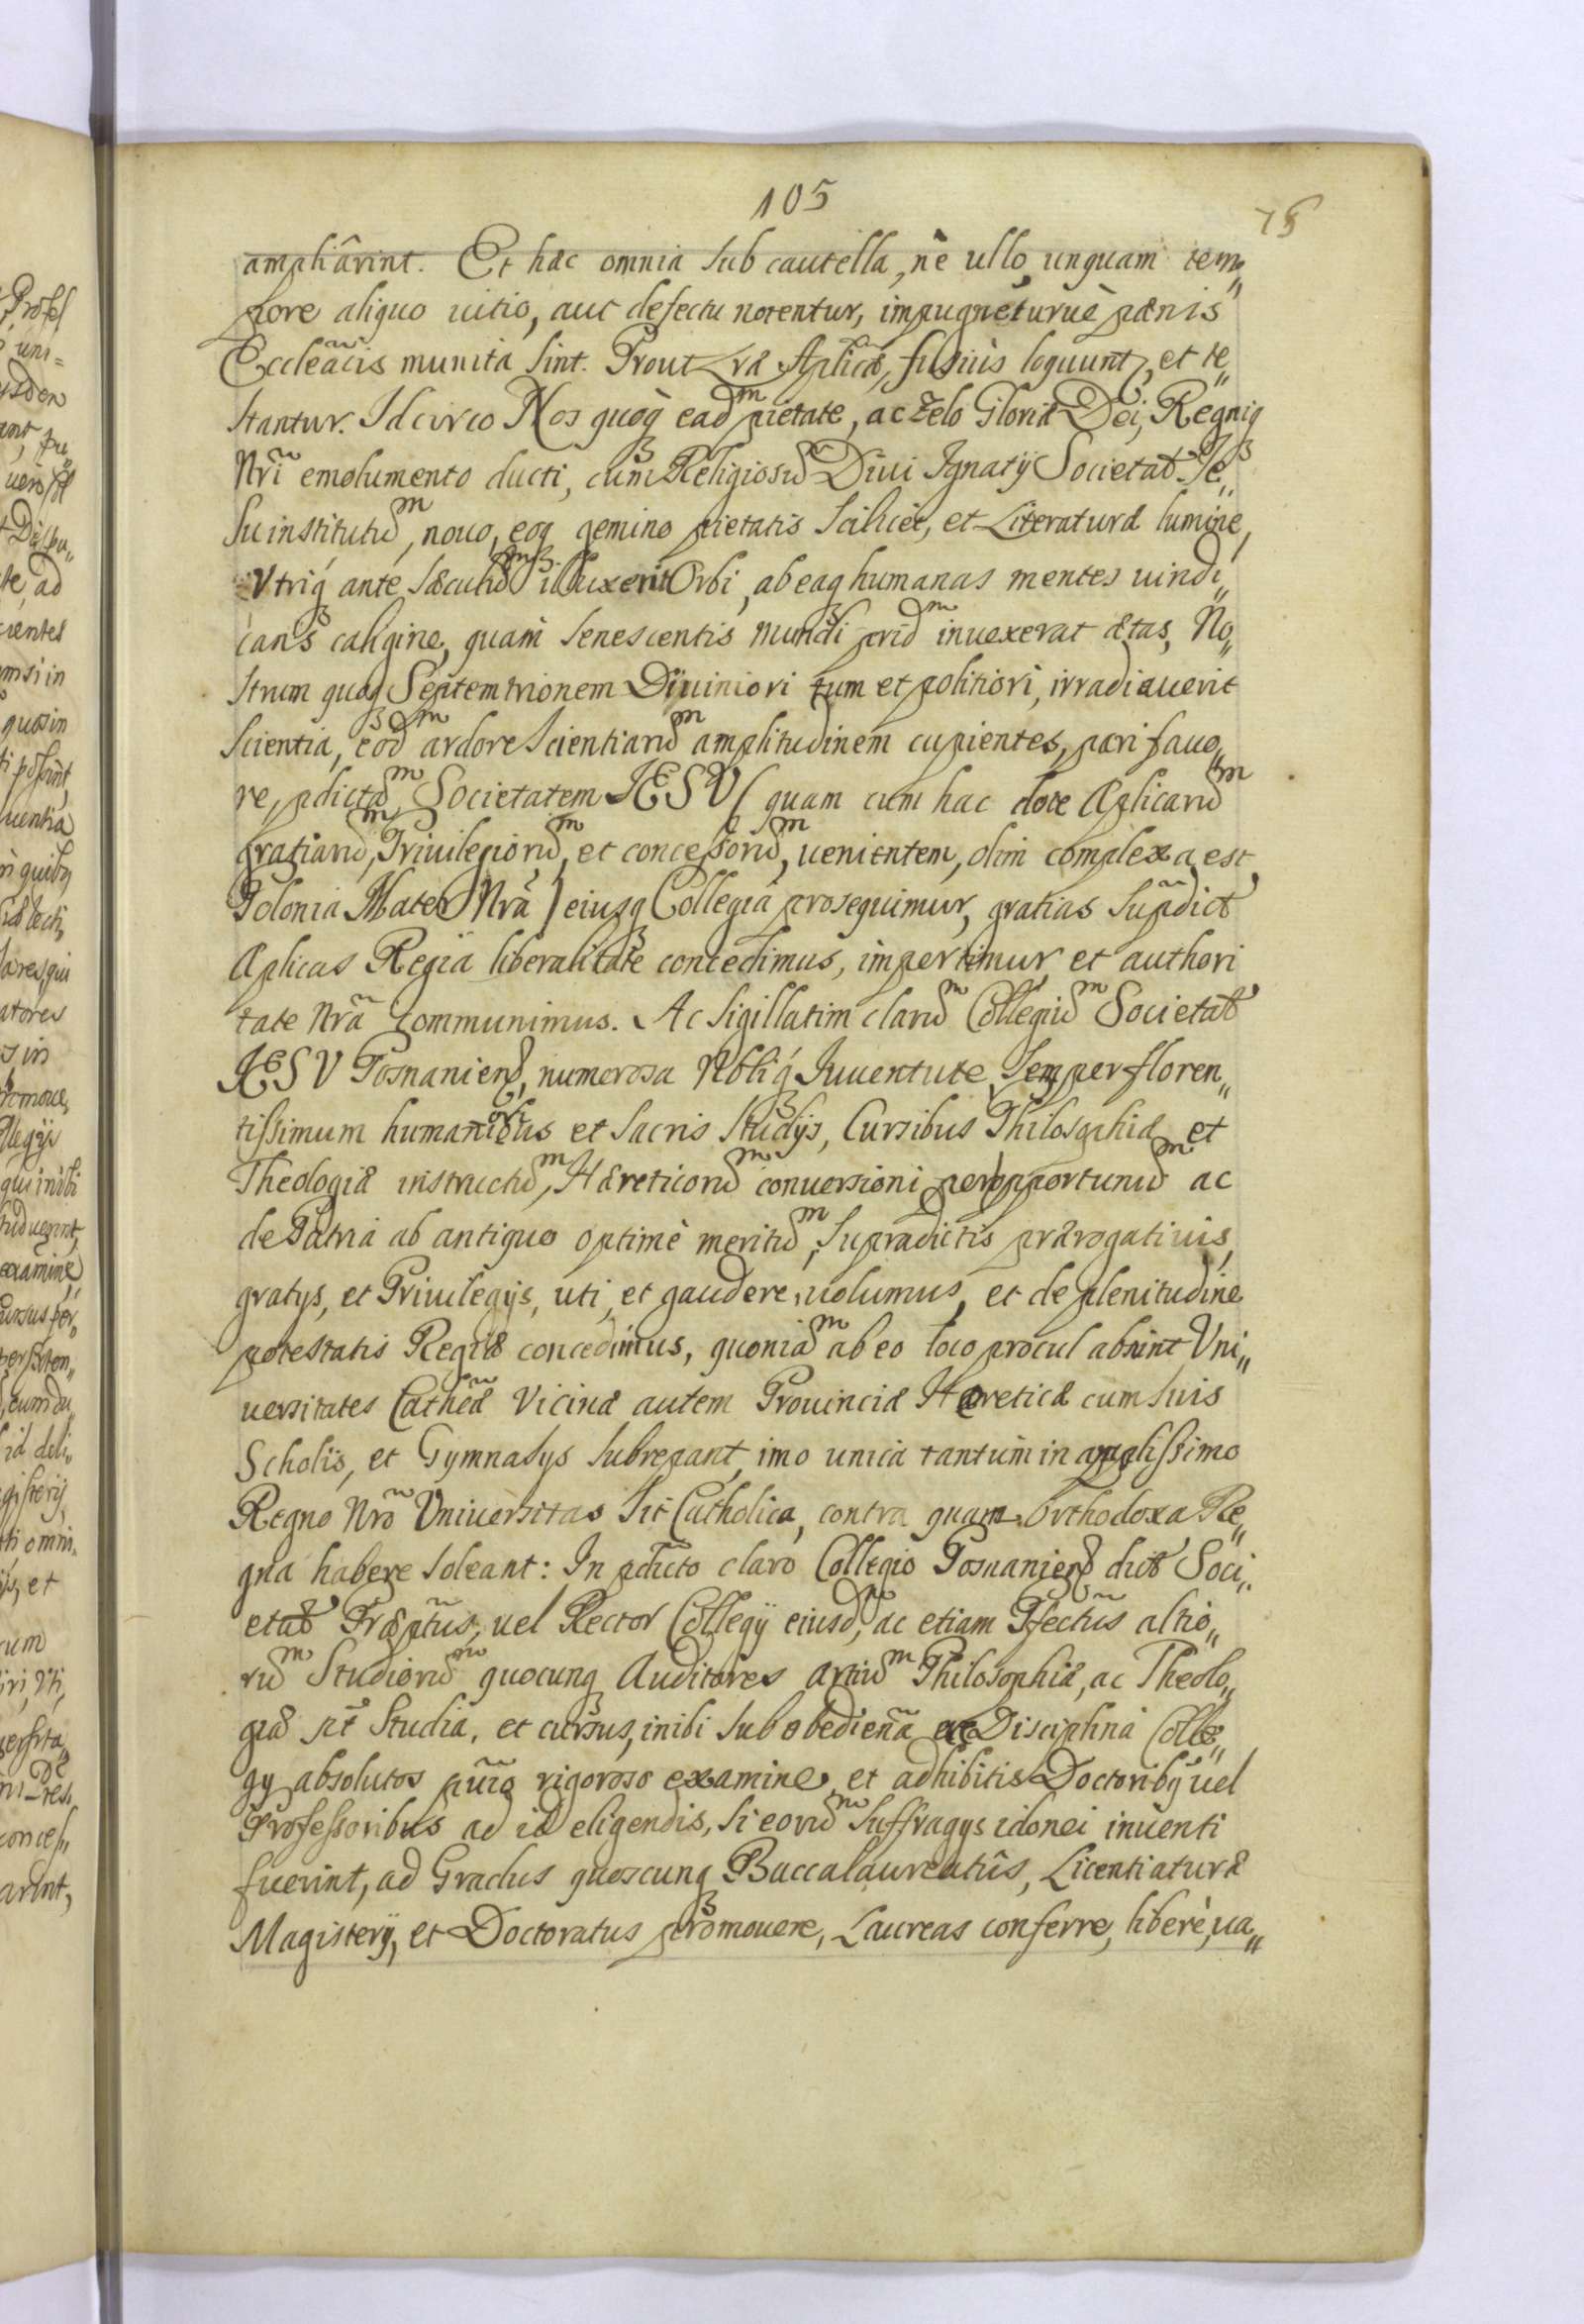 105
75
ampliârint. Et hæc omnia sub cautella, nè ullo unquam tem„
pore aliquo uitio, aut defectu notentur, impugneturuè pænis
Eccleãcis munita sint. Prout Lræ Aplicæ, fusiùs loquunt, et te„
stantur. Idcirco Nos quoq eadem pietate, ac zelo Gloriæ Dei, Regniq
Nri~ emolumento ducti, cum Religiosũ Diui Ignatij Societat Je„
su institutum, nouo, eoq gemino pietatis scilicèt, et Literaturæ lumine,
Vtriq ante sæculum illuxerit Orbi, ab eaq humanas mentes uindi„
cans caligine, quam senescentis mundi pridem inuexerat ætas, No„
strum quoq Septemtrionem Diuiniori tum et politiori, irradiauerit
scientia, eodem ardore scientiarum amplitudinem cupientes, pari fauo„
re, pdictam Societatem IESV (quam cum hac dote Aplicarum
gratiarum, Priuilegiorum, et concessorum, uenientem, olim complexa est
Polonia Mater Nrã) eiusq Collegia prosequimur, gratias supdict
Aplicas Regiâ liberalitate concedimus, impertimur et authori
tate Nrã communimus. Ac sigillatim clarum Collegium Societat
IESV Posnaniens, numerosa Nobliq Iuuentute semper floren„
tissimum humanioribus et sacris studijs, Cursibus Philosophiæ et
Theologiæ instructum, Hæreticorum conuersioni peropportunum ac
de Patria ab antiquo optimè meritum, supradictis prærogatiuis,
gratys, et Priuilegijs, uti, et gaudere uolumus, et de plenitudine
potestatis Regiæ concedimus, quoniam ab eo loco procul absint Vni„
uersitates Cathcæ Vicinæ autem Prouinciæ Hæreticæ cum suis
Scholis, et Gymnasys subrepant, imo unica tantùm in amplissimo
Regno Nrõ Vniuersitas sit Catholica, contra quam Orthodoxa Re„
gna habere soleant: In pdicto claro Collegio Posnaniens dict Soci„
etat Præptus, uel Rector Collegij eiusdem, ac etiam Pfectus altio„
rum Studiorum quocunq Auditores artium Philosophiæ, ac Theolo„
giæ pt studia, et cursus, inibi sub obedienã ac Disciplinâ Colle„
gy absolutos puio rigoroso examine, et adhibitis Doctoribq uel
Professoribus ad id eligendis, si eorum suffragys idonei inuenti
fuerint, ad Gradus quoscunq Baccalaureatûs, Licentiaturæ
Magistery, et Doctoratus promouere, Laureas conferre, liberè, ua„